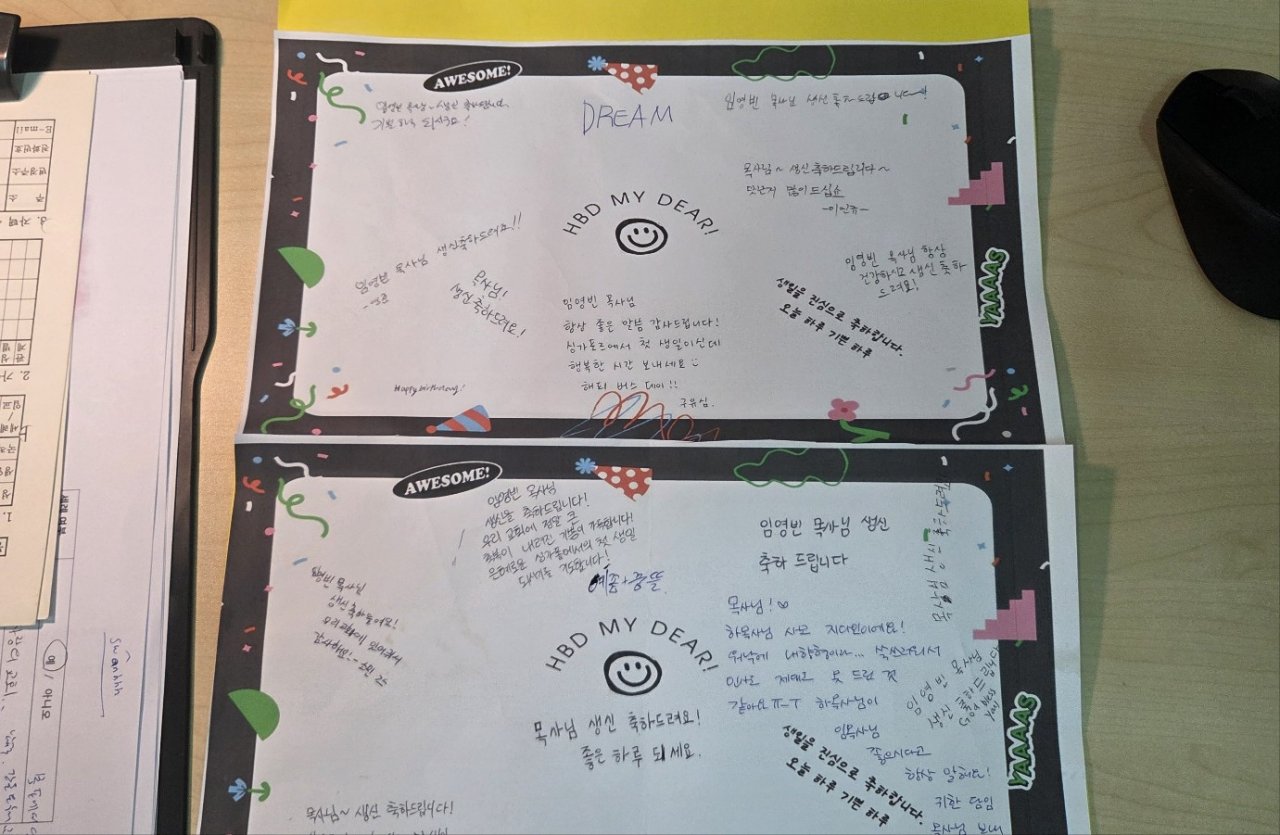 AWESOME!
DREAM
임영빈 목사님 생신 축하드립니다!
임영빈 목사님~ 생신 축하합니다
기쁜 하루 되시구요!
목사님~ 생신축하드립니다~
맛난거 많이 드십쇼
HBD MY DEAR!
임영빈 목사님 생신축하드려요!!
목사님!
생신축하드려요!
임영빈 목사님 항상
건강하시고 생신 축하
드려요!
YAAAAS
생일을 진심으로 축하합니다.
오늘 하루 기쁜 하루
임영빈 목사님
항상 좋은 말씀 감사드립니다!
싱가포르에서 첫 생일이신데
행복한 시간 보내세요
해피 버스 데이!!
구유심.
Happy birthday!
AWESOME!
임영빈 목사님
생신을 축하드립니다!
우리 교회에 정말 큰
축복이 내려진 기쁨이 가득합니다!
은혜로운 싱가폴에서의 첫 생일
되시기를 기도합니다!
임영빈 목사님 생신
축하 드립니다
임영빈 목사님
생신축하드려요!
우리교회에 있어주셔서
감사해요!
HBD MY DEAR!
목사님 생신 축하드려요!
좋은 하루 되세요.
목사님!♡
하목사님 사모 지대원이에요!
워낙에 내향형이라... 쑥쓰러워서
인사도 제대로 못 드린 것
같아요 ㅠ-ㅜ 하목사님이
임목사님
좋으시다고
항상 말해요!
귀한 담임
목사님 보내
임영빈 목사님
생신 축하드립니다
God bless
you!
YAAAAS
생일을 진심으로 축하합니다.
오늘 하루 기쁜 하루
목사님~ 생신 축하드립니다!
swanhhh
예 / 아니요